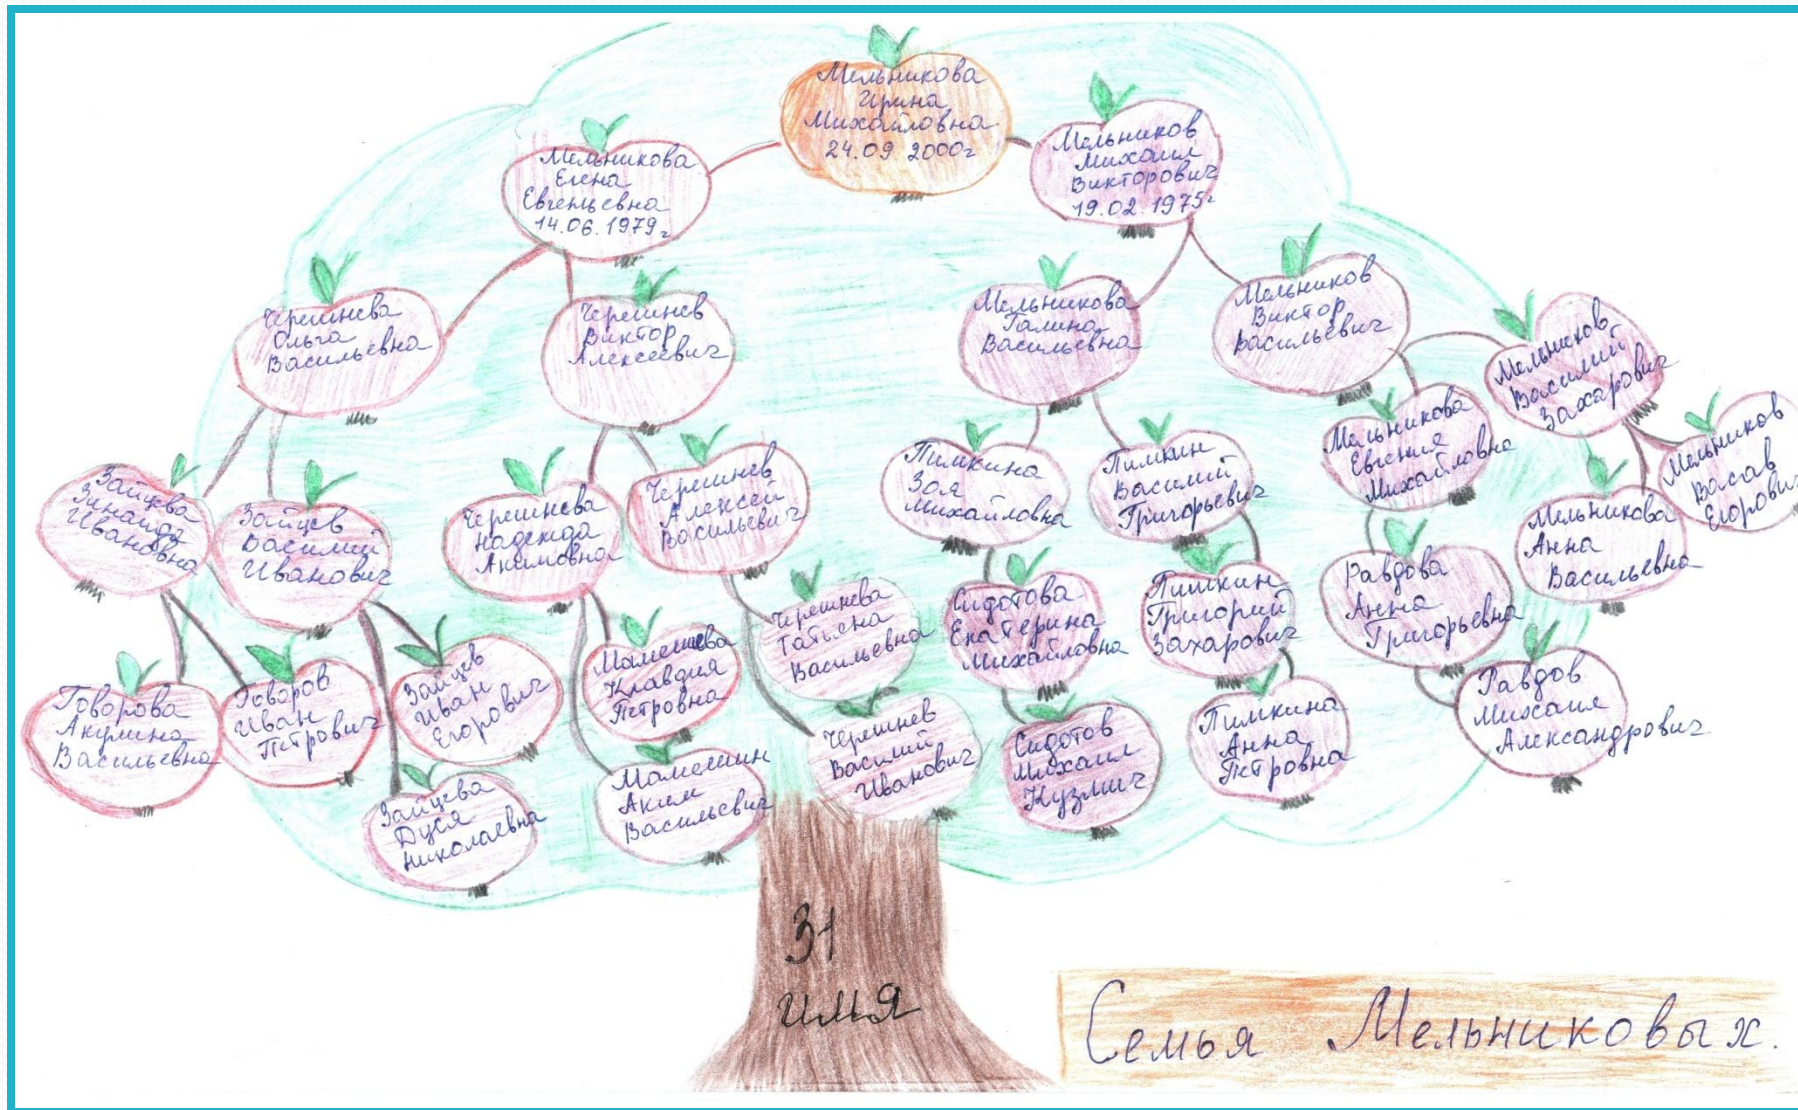 Мельникова
Ирина
Михайловна
24.09 2000г
Мельникова
Елена
Евгеньевна
14.06.1979г
Мельников
Михаил
Викторович
19.02.1975г
Черешнева
Ольга
Васильевна
Черешнев
Виктор
Алексеевич
Мельникова
Галина
Васильевна
Мельников
Виктор
Васильевич
Мельников
Василий
Захарович
Зайцева
Зинаида
Ивановна
Зайцев
Василий
Иванович
Черешнева
Надежда
Акимовна
Черешнев
Алексей
Васильевич
Пимкина
Зоя
Михайловна
Пимкин
Василий
Григорьевич
Мельникова
Евгения
Михайловна
Мельникова
Анна
Васильевна
Мельников
Васав
Егорович
Говорова
Акулина
Васильевна
Говоров
Иван
Петрович
Зайцев
Иван
Егорович
Зайцева
Дуся
Николаевна
Мамешева
Клавдия
Петровна
Мамешин
Аким
Васильевич
Черешнева
Татьяна
Васильевна
Черешнев
Василий
Иванович
Сидотова
Екатерина
Михайловна
Сидотов
Михаил
Кузмич
Пимкин
Григорий
Захарович
Пимкина
Анна
Петровна
Равдова
Анна
Григорьевна
Равдов
Михаил
Александрович
31
имя
Семья Мельниковых.